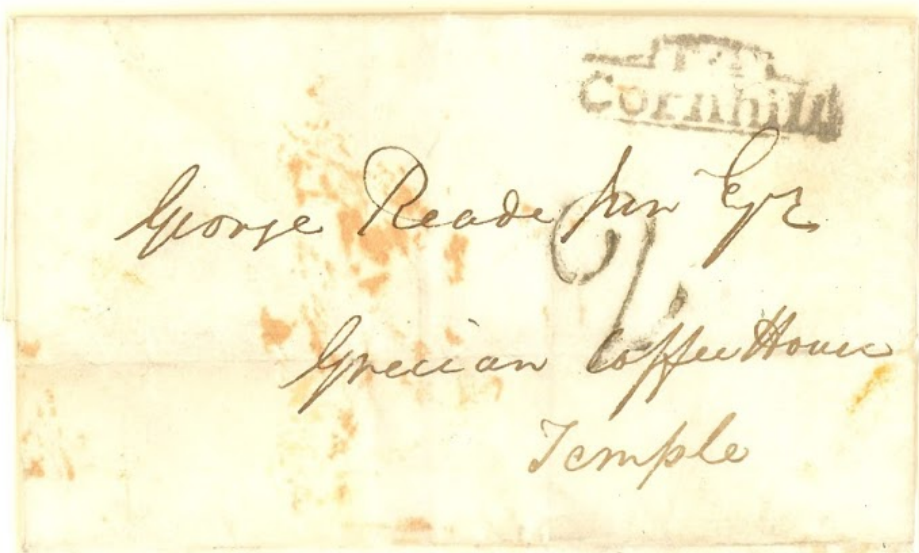 T.P
Cornhill
George Reade Jun Esqr
2
Grecian Coffee House
Temple